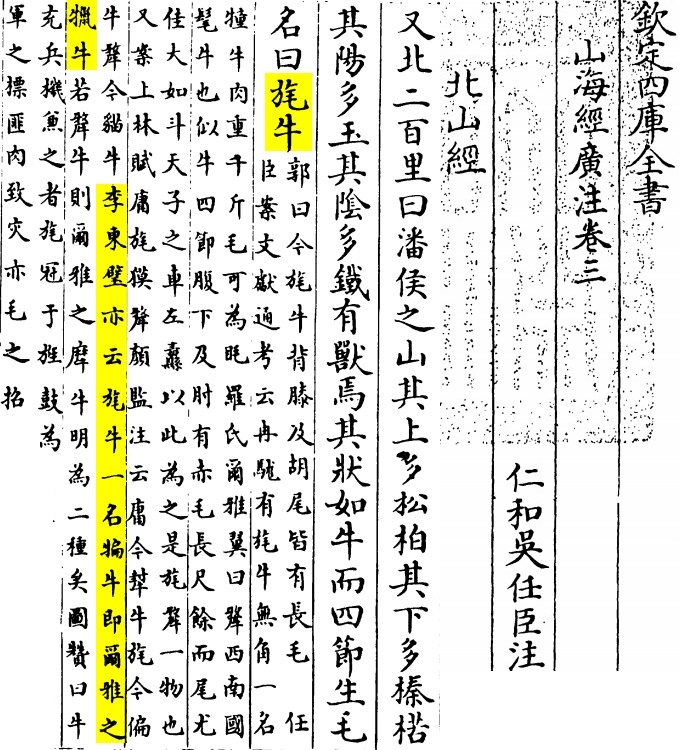 欽定四庫全書
山海經廣注卷三
仁和吳任臣注
北山經
又北二百里曰潘侯之山其上多松柏其下多榛楛
其陽多玉其陰多鐵有獸焉其狀如牛而四節生毛
名曰旄牛
郭曰今旄牛背膝及胡尾皆有長毛 任
臣案文獻通考云冉駹有旄牛無角一名
犝牛肉重千斤毛可為毦羅氏爾雅翼曰犛西南國
髦牛也似牛四節腹下及肘有赤毛長尺餘而尾尤
佳大如斗天子之車左纛以此為之是旄犛一物也
又案上林賦庸旄獏犛顔監注云庸今犎牛旄今偏
牛犛今貓牛李東璧亦云旄牛一名犏牛即爾雅之
犣牛若犛牛則爾雅之犘牛明為二種矣圖贊曰牛
充兵機兼之者旄冠于旌鼓為
軍之標匪肉致灾亦毛之招